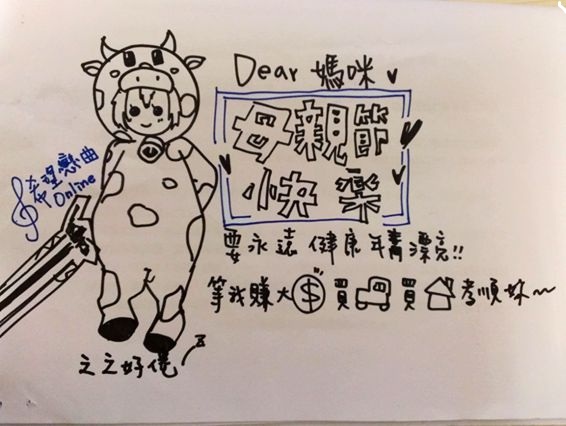 Dear 媽咪
母親節
快樂
要永遠健康年青漂亮!!
等我賺大$買買孝順妳~
希望戀曲
Online
之之好佬